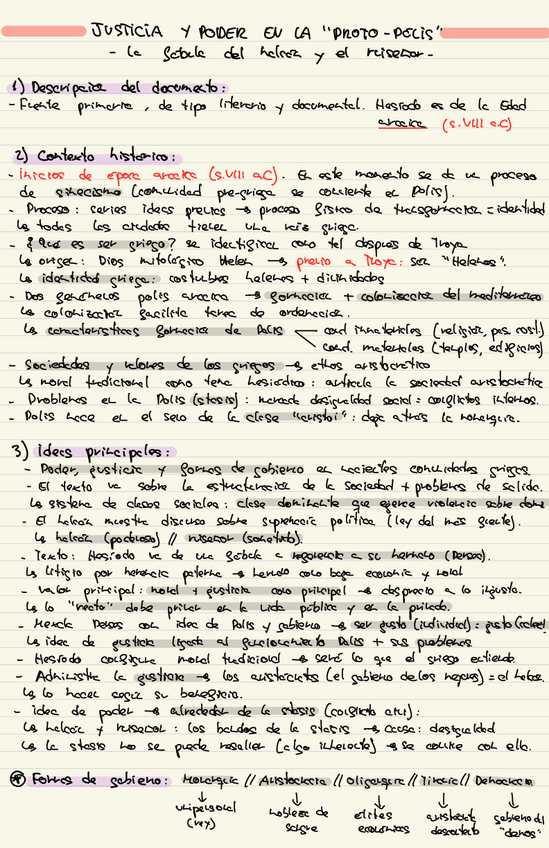 JUSTICIA Y PODER EN LA "PROTO-POLIS"
- La fábula del halcón y el ruiseñor -
1) Descripción del documento:
- Fuente primaria, de tipo literario y documental. Hesíodo es de la Edad
arcaica (s. VIII a.C)
2) Contexto histórico:
- Inicios de época arcaica (s.VIII a.C). En este momento se da un proceso
de sinecismo (comunidad pre-griega se convierte en Polis).
- Proceso: series ideas previas → proceso físico de transformación = identidad
↳ todas las ciudades tienen una raíz griega.
- ¿Qué es ser griego? se identifican como tal después de Troya
↳ origen: Dios mitológico Helen → previo a Troya: son "Helenos".
↳ identidad griega: costumbres helenas + divinidades
- Dos fenómenos polis arcaica → formación + colonización del mediterráneo
↳ colonización facilita tarea de ordenación.
↳ características formación de Polis
cond. inmateriales (religión, pas. cost.)
cond. materiales (templos, edificios)
- Sociedades y valores de los griegos → ethos aristocrático
↳ moral tradicional como tema hesiódico: articula la sociedad aristocrática
- Problemas en la Polis (stasis): marcada desigualdad social = conflictos internos.
- Polis nace en el seno de la clase "aristoi": deja atrás la monarquía.
3) Ideas principales:
- Poder, justicia y formas de gobierno en nacientes comunidades griegas.
- El texto va sobre la estructuración de la sociedad + problema de salida.
↳ sistema de clases sociales: clase dominante que ejerce violencia sobre
- El halcón muestra discurso sobre supremacía política (ley del más fuerte).
↳ halcón (poderoso) // ruiseñor (sometido).
- Texto: Hesíodo va de una fábula a su hermano (Perses).
↳ litigio por herencia paterna → hecho como base economía y moral
- Valor principal: moral + justicia como principal → desprecio a lo injusto.
↳ lo "recto" debe primar en la vida pública y en la privada.
- Mezcla Perses con idea de Polis y gobierno → ser justo (individual) = justo
↳ idea de justicia ligada al funcionamiento Polis + sus problemas
- Hesíodo configura moral tradicional → será lo que el griego entienda.
- Administra la justicia → los aristócratas (el gobierno de los mejores) = el halcón.
↳ lo hacen según su beneficio.
- idea de poder → alrededor de la stasis (conflicto civil):
↳ halcón y ruiseñor: los bandos de la stasis → causa: desigualdad
↳ la stasis no se puede resolver (algo inherente) → se convive con ella.
Formas de gobierno: Monarquía // Aristocracia // Oligarquía // Tiranía // Democracia
unipersonal (rey)
nobleza de sangre
élites económicas
aristócrata descontento
gobierno del "demos"